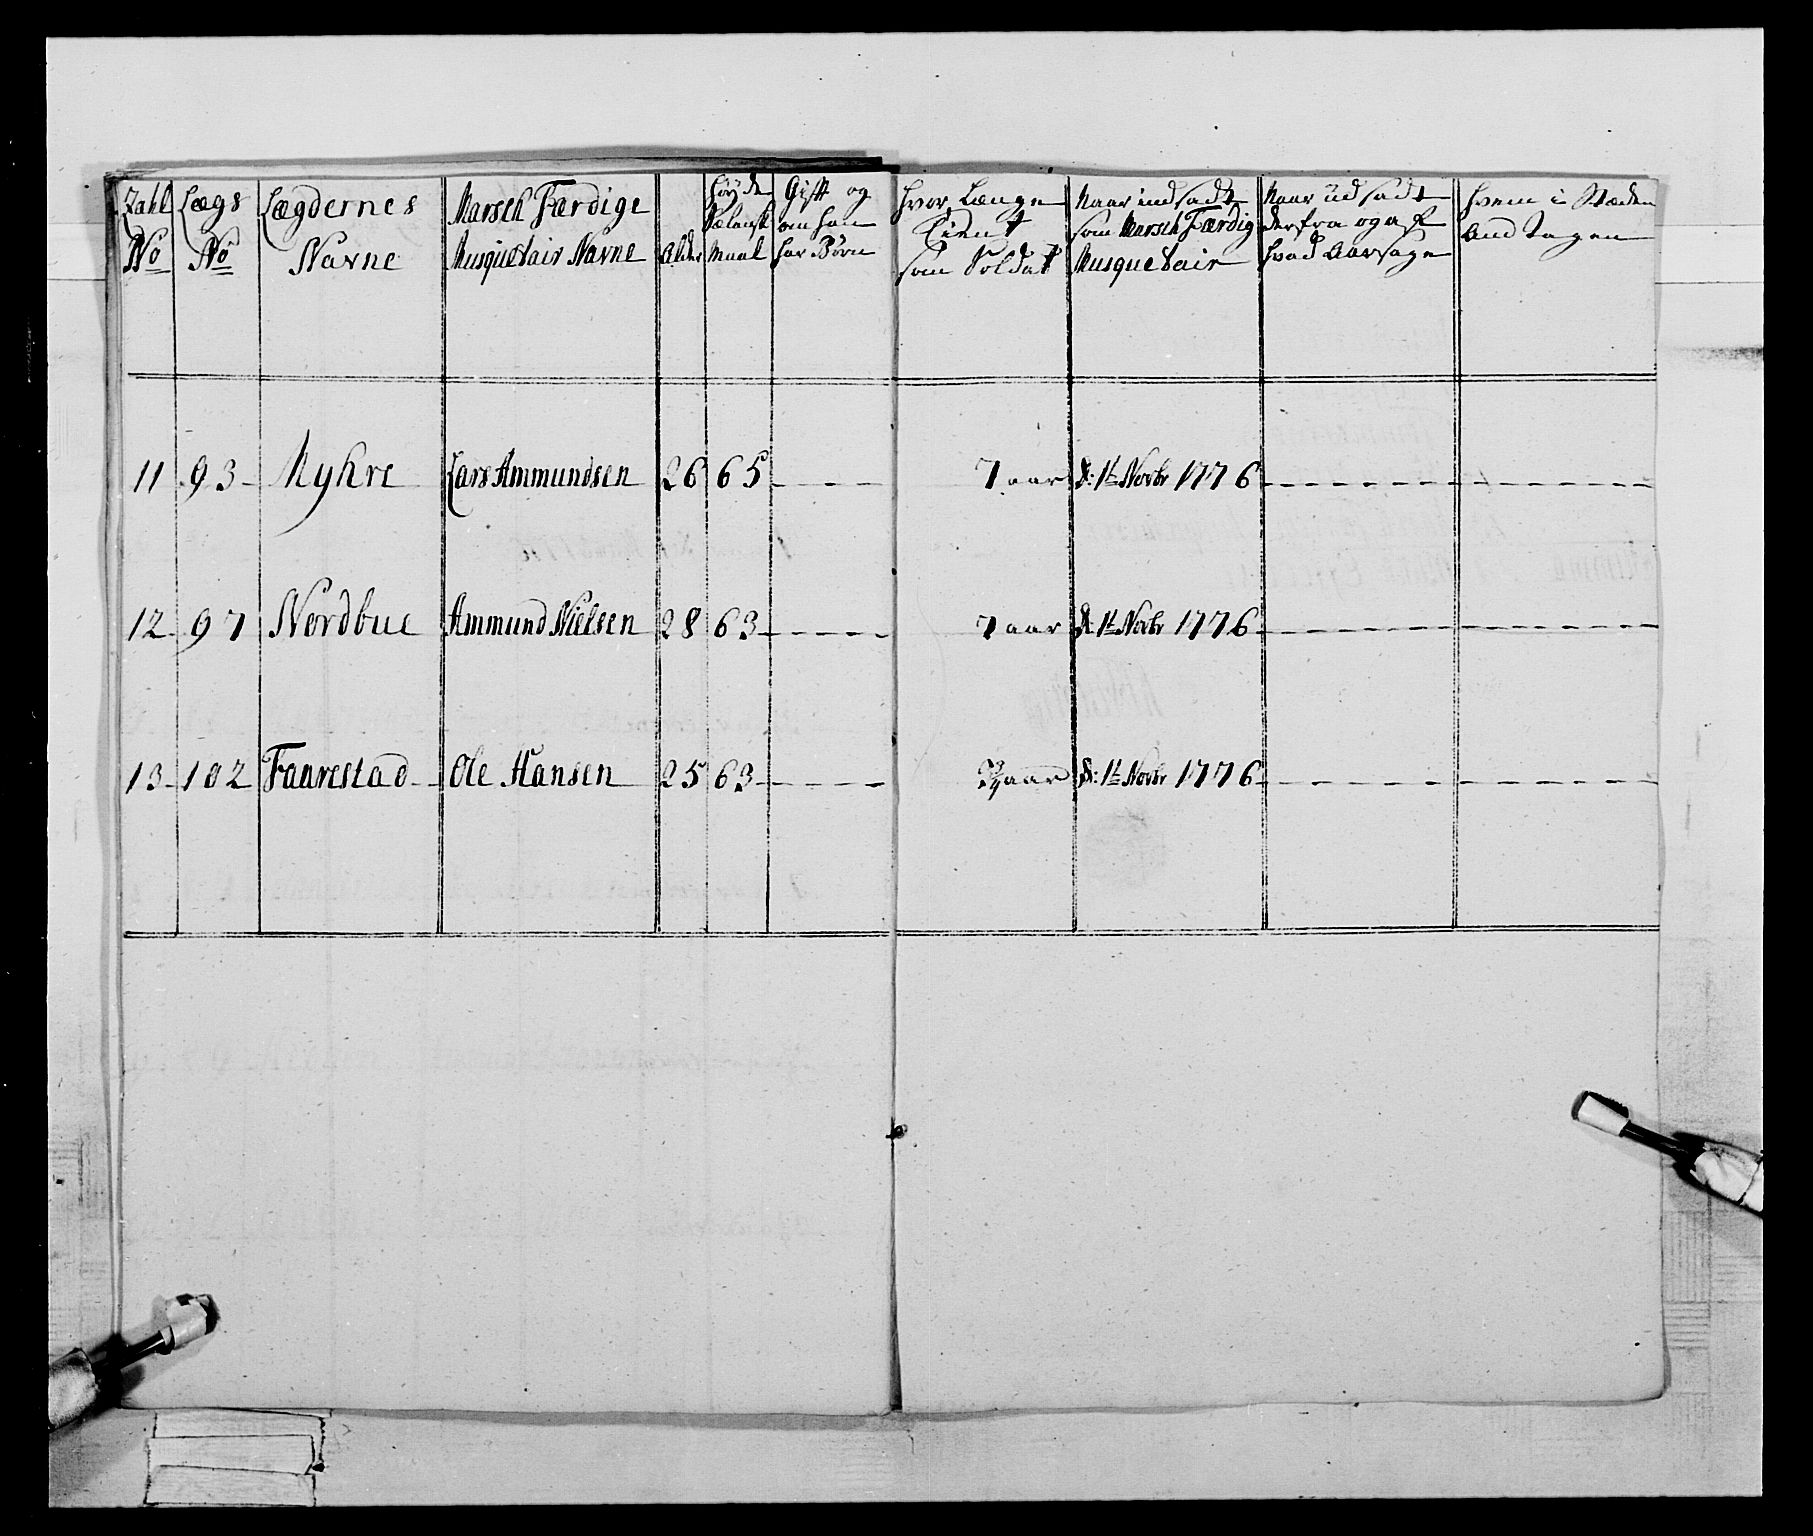 Zahl No
Lægs No
Lægdernes Navne
Marsch Færdige Musquetair Navne
Alder
Høyde Sælansk Maal
Gift og om han har Børn
Hvor Længe Tient som Soldat
Naar indsadt som Marsch Færdig Musquetair
Naar üdsadt derfra og af hvad Aarsage
Hvem i Stæden andtagen
11 93 Myhre Lars Ammundsen 26 65 7 aar d: 1t Novbr 1776
12 97 Nordbue Ammund Nielsen 28 63 7 aar d: 1t Novbr 1776
13 102 Faarestad Ole Hansen 25 63 aar d: 1t Novbr 1776